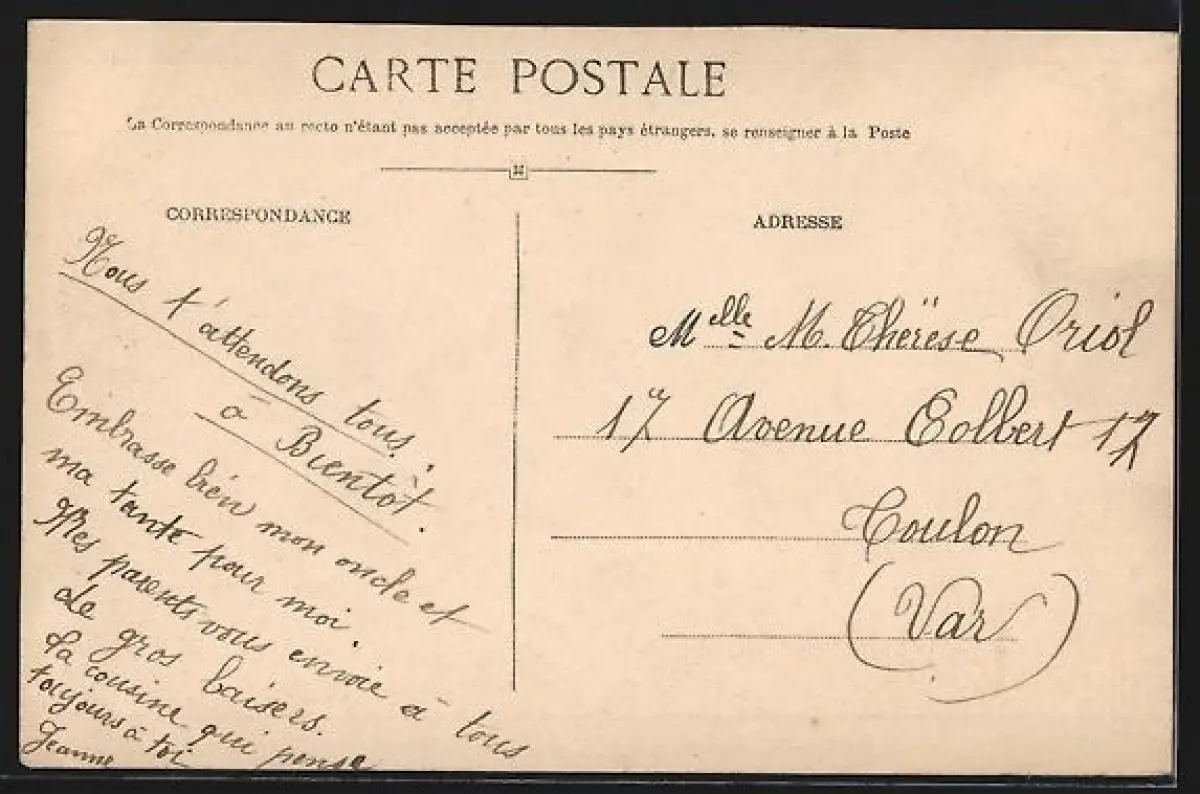 CARTE POSTALE
La Correspondance au recto n'étant pas acceptée par tous les pays étrangers, se renseigner à la Poste
CORRESPONDANCE
Nous t'attendons tous.
à Bientôt.
Embrasse bien mon oncle et
ma tante pour moi.
Mes parents vous envoie à tous
de gros baisers.
Ta cousine qui pense
toujours à toi
Jeanne
ADRESSE
Melle M. Thérèse Oriol
17 Avenue Colbert 17
Toulon
(Var)